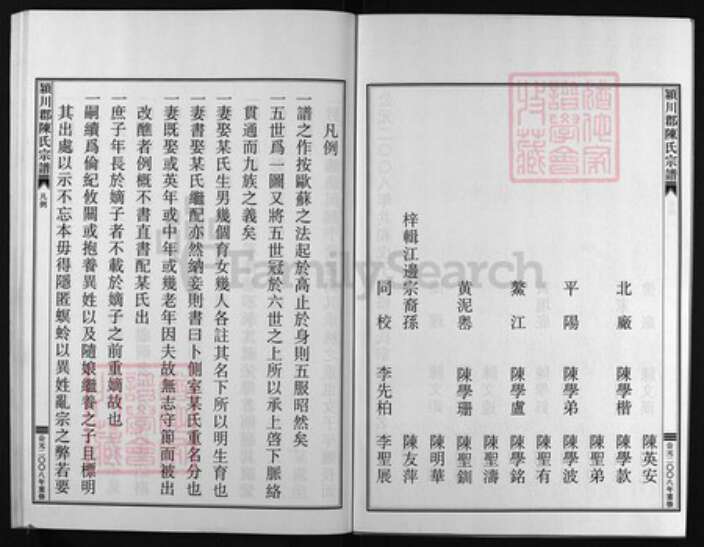 潁川郡陳氏宗譜
陳英安
北廠 陳學楷 陳學款
陳聖弟
平陽 陳學弟 陳學波
陳聖有
鰲江 陳學盧 陳學銘
陳聖濤
黃泥嶴 陳學珊 陳聖釧
陳明華
梓輯江邊宗裔孫 陳友萍
同校 李先柏 李聖展
公元二〇〇八年重修
潁川郡陳氏宗譜
凡例
凡例
一譜之作按歐蘇之法起於高止於身則五服昭然矣
一五世爲一圖又將五世冠於六世之上所以承上啓下脈絡
貫通而九族之義矣
一妻娶某氏生男幾個育女幾人各註其名下所以明生育也
一妻書娶某氏繼配亦然納妾則書曰卜側室某氏重名分也
一妻既娶或英年或中年或幾老年因夫故無志守節而被出
改醮者例概不書直書配某氏出
一庶子年長於嫡子者不載於嫡子之前重嫡故也
一嗣續爲倫紀攸關或抱養異姓以及隨娘繼養之子且標明
其出處以示不忘本毋得隱匿螟蛉以異姓亂宗之弊若要
公元二〇〇八年重修
FamilySearch